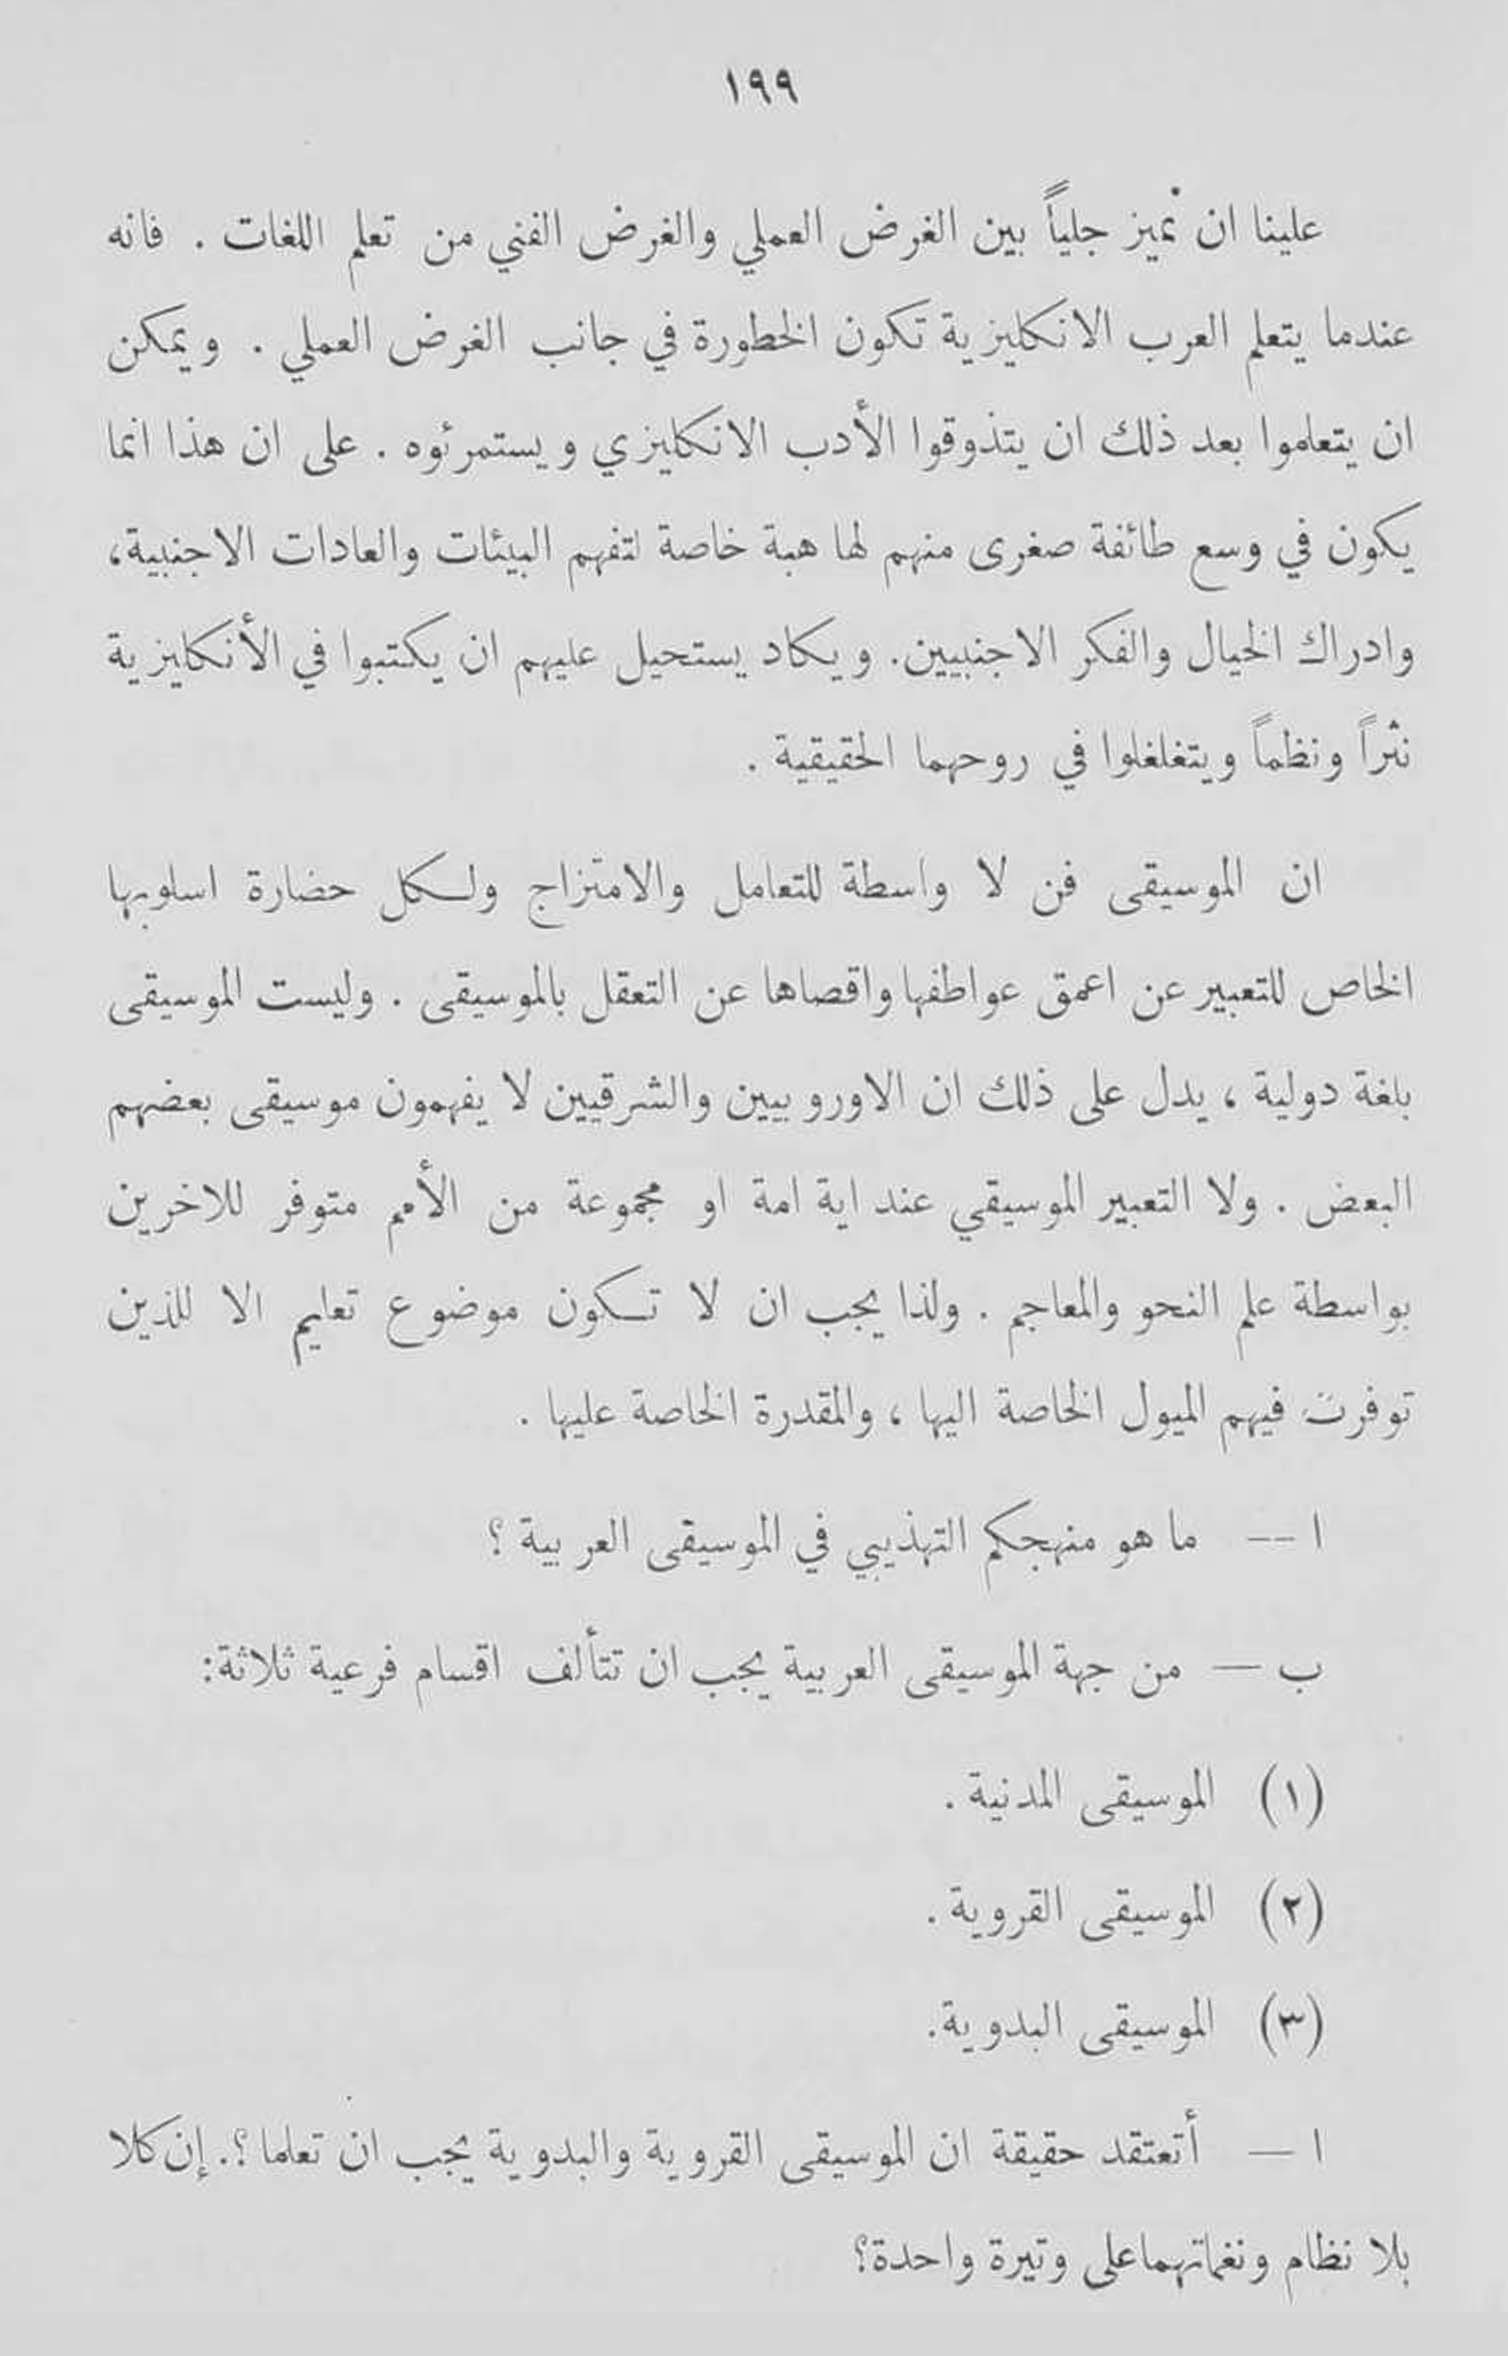 ١٩٩
علينا ان نميز جلياً بين الغرض العملي والغرض الفني من تعلم اللغات . فانه
عندما يتعلم العرب الانكليزية تكون الخطورة في جانب الغرض العملي . ويمكن
ان يتعلموا بعد ذلك ان يتذوقوا الأدب الانكليزي ويستمرئوه . على ان هذا انما
يكون في وسع طائفة صغرى منهم لها هبة خاصة لتفهم البيئات والعادات الاجنبية،
وادراك الخيال والفكر الاجنبيين. ويكاد يستحيل عليهم ان يكتبوا في الأنكليزية
نثراً ونظماً ويتغلغلوا في روحهما الحقيقية .
ان الموسيقى فن لا واسطة للتعامل والامتزاج ولكل حضارة اسلوبها
الخاص للتعبير عن اعمق عواطفها واقصاها عن التعقل بالموسيقى . وليست الموسيقى
بلغة دولية ، يدل على ذلك ان الاوروبيين والشرقيين لا يفهمون موسيقى بعضهم
البعض . ولا التعبير الموسيقي عند اية امة او مجموعة من الأمم متوفر للاخرين
بواسطة علم النحو والمعاجم . ولذا يجب ان لا تكون موضوع تعليم الا للذين
توفرت فيهم الميول الخاصة اليها ، والمقدرة الخاصة عليها .
ا -- ما هو منهجكم التهذيبي في الموسيقى العربية ؟
ب — من جهة الموسيقى العربية يجب ان تتألف اقسام فرعية ثلاثة:
(١) الموسيقى المدنية .
(٢) الموسيقى القروية .
(٣) الموسيقى البدوية.
ا — أتعتقد حقيقة ان الموسيقى القروية والبدوية يجب ان تعلما ؟. إن كلا
بلا نظام ونغماتهما على وتيرة واحدة؟